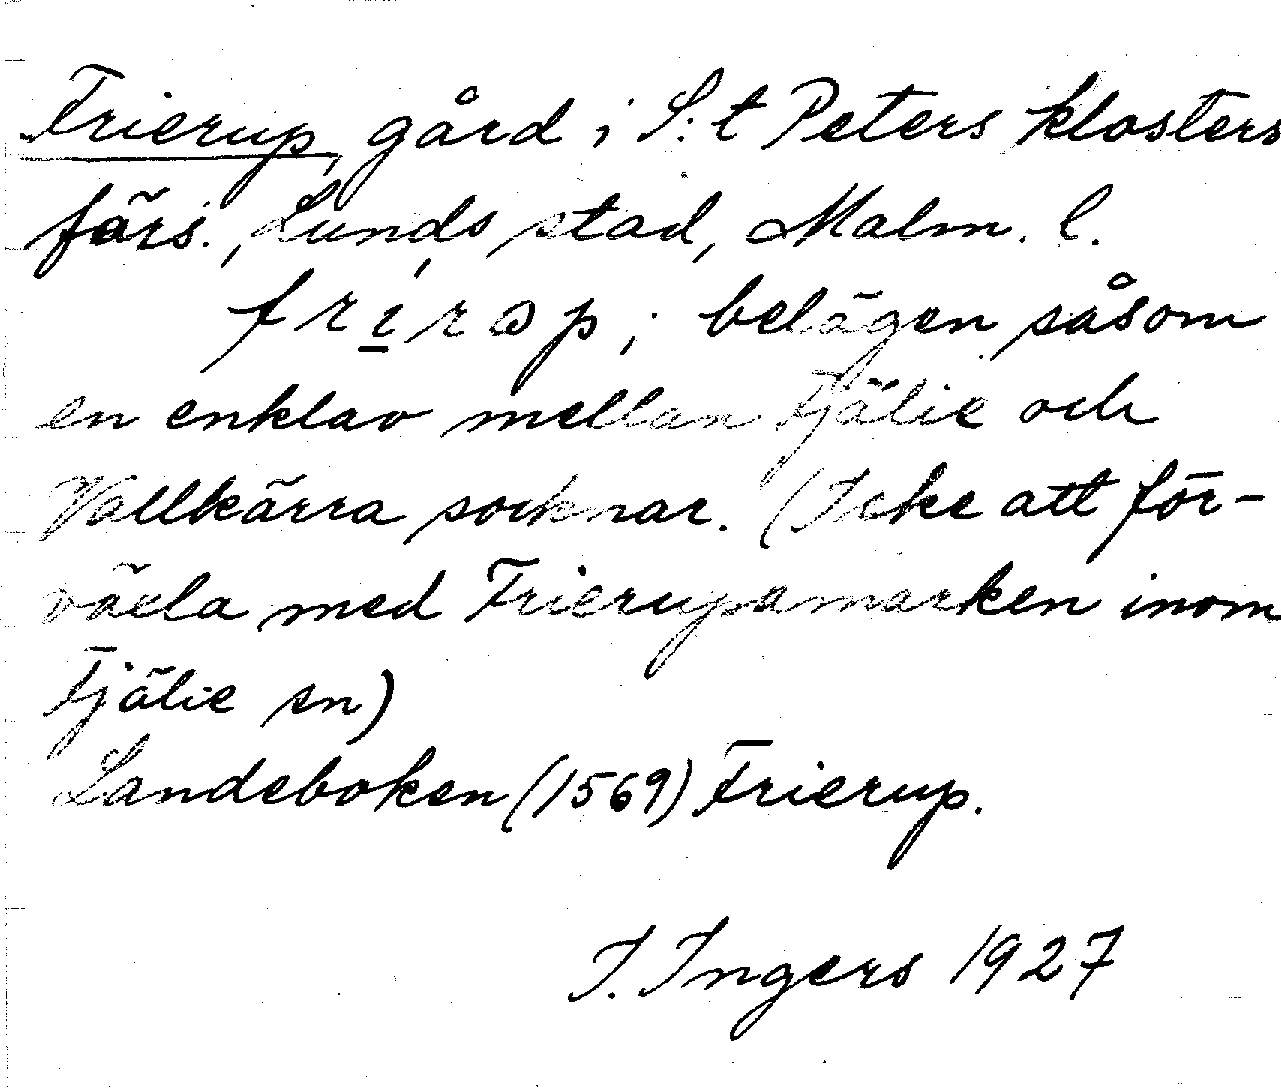 Frierup, gård i S:t Peters klosters
förs., Lunds stad, Malm. l.
fri̲rəp; belägen såsom
en enklav mellan Fjälie och
Vallkärra socknar. (Icke att för-
växla med Frierupamarken inom
Fjälie sn)
Landeboken (1569) Frierup.
I. Ingers 1927